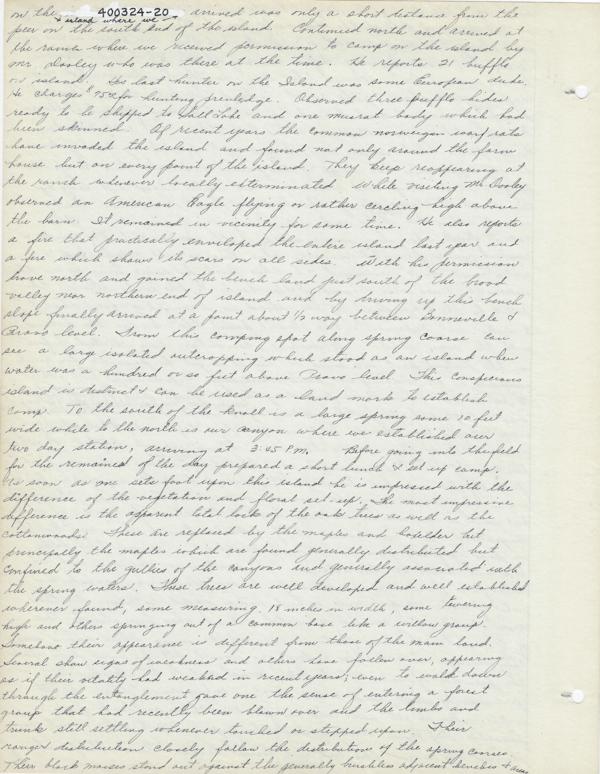 400324-20
on the island where we arrived was only a short distance from the
peer on the south end of the island. Continued north and arrived at
the ranch where we received permission to camp on the island by
Mr Dooley who was there at the time. He reports 21 buffflo
on island. The last hunter on the Island was some European dude.
He charges $75 for hunting previledge. Observed three buffflo hides
ready to be shipped to Salt Lake and one musrat body which had
been skinned. Of recent years the common norweigan warf rats
have invaded the island and found not only around the farm
house but on every point of the island. They keep reappearing at
the ranch whenever locally exterminated. While visiting Mr Dooley
observed an American Eagle flying or rather cercling high above
the barn. It remained in vicinity for some time. He also reports
a fire that practically enveloped the entire island last year and
a fire which shows its scars on all sides. With his permission
drove north and gained the bench land just south of the broad
valley near northern end of island and by driving up this bench
slope finally arrived at a point about 1/2 way between Bonneville &
Provo level. From this camping spot along spring coarse can
see a large isolated outcropping which stood as an island when
water was a hundred or so feet above Provo level. This conspicious
island is distinct & can be used as a land mark to establish
camp. To the south of the knoll is a large spring some 10 feet
wide while to the north is our canyon where we established our
two day station, arriving at 3:45 P.M. Before going into the field
for the remained of the day prepared a short lunch & set up camp.
As soon as one sets foot upon this island he is impressed with the
difference of the vegetation and floral set up. The most impressive
difference is the apparent total lack of the oak trees as well as the
cottonwoods. These are replaced by the maples and boxelder but
principally the maples which are found generally distributed but
confined to the gullies of the canyons and generally associated with
the spring waters. These trees are well developed and well established
wherever found, some measuring 18 inches in width, some towering
high and others springing out of a common base like a willow group.
Somehow their appearance is different from those of the main land.
Several show signs of weakness and others have fallen over, appearing
as if their vitality had weakned in recent years; even to walk down
through the entanglement gave one the sense of entering a forest
group that had recently been blown over and the limbs and
trunk still settling whenever touched or stepped upon. Their
range & distribution closely follow the distribution of the spring courses.
Their black masses stand out against the generally brushless adjacent benches &